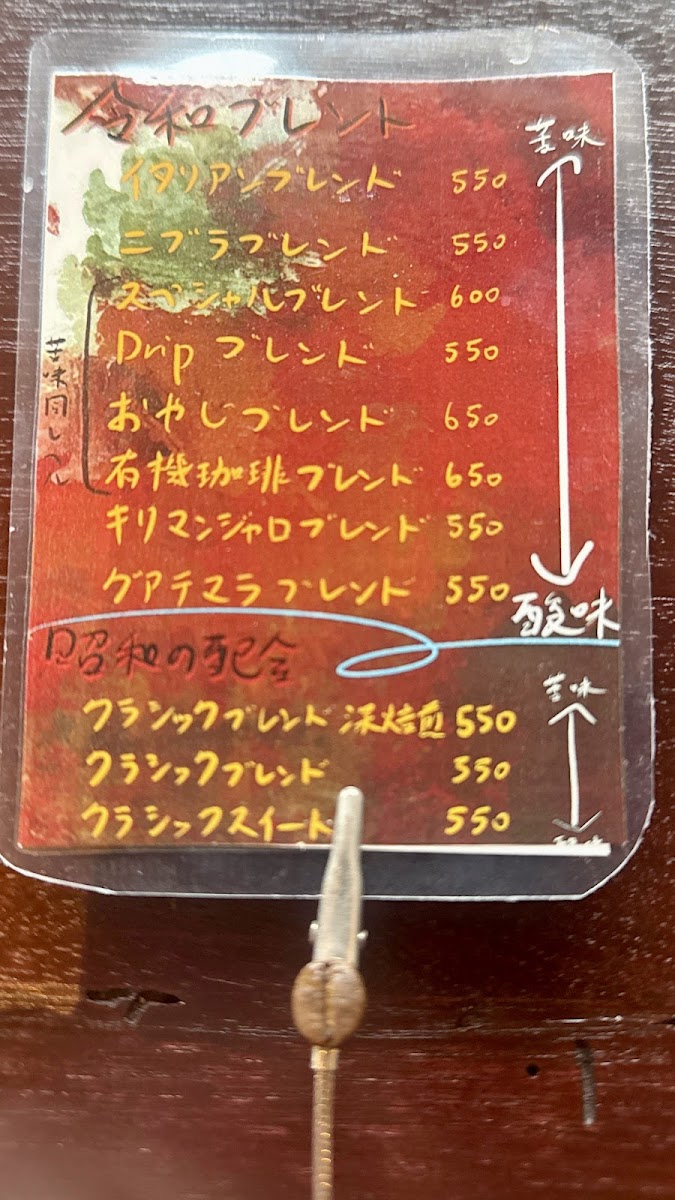 令和ブレンド
苦味
イタリアンブレンド 550
ニブラブレンド 550
スペシャルブレンド 600
Drip ブレンド 550
おやじブレンド 650
有機珈琲ブレンド 650
苦味同レベル
キリマンジャロブレンド 550
グアテマラブレンド 550
酸味
昭和の配合
苦味
クラシックブレンド 深焙煎 550
クラシックブレンド 550
クラシックスイート 550